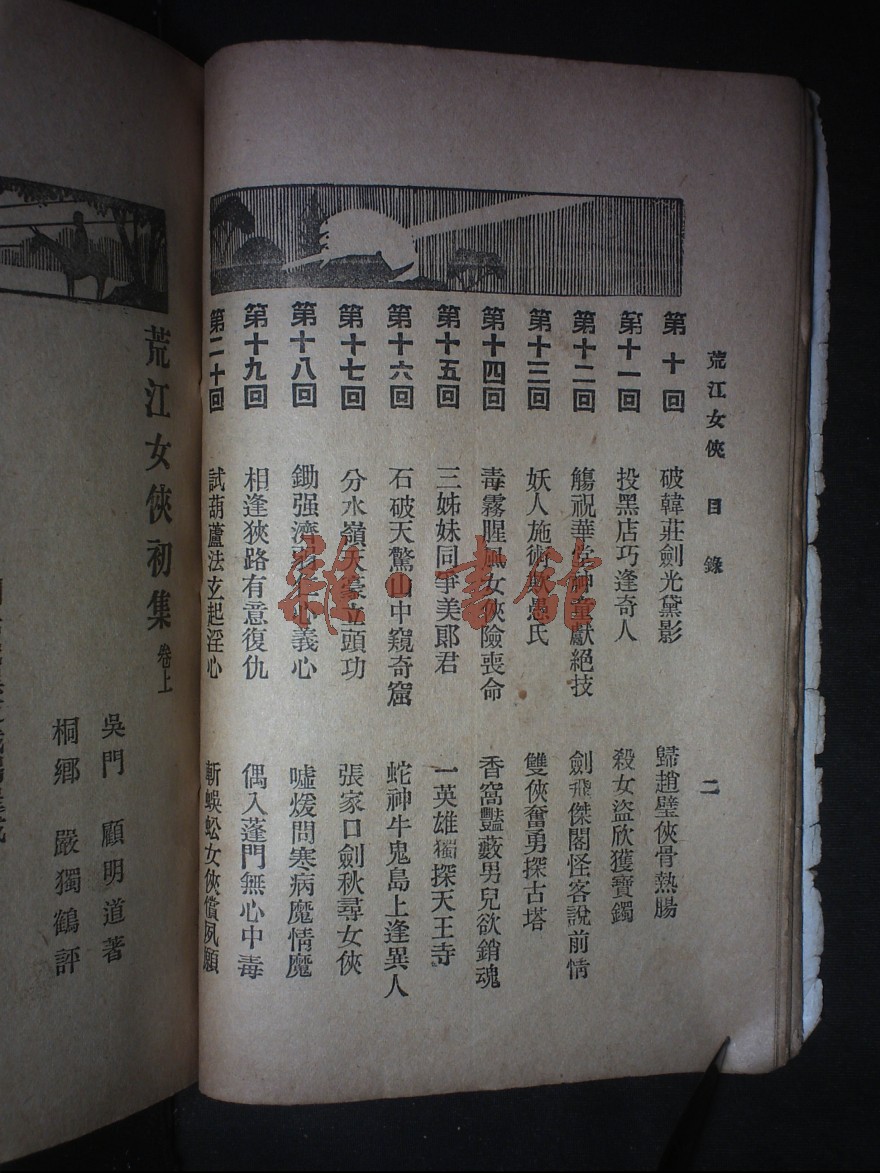 荒江女俠 目錄
二
第十回 破韓莊劍光黛影 歸趙璧俠骨熱腸
第十一回 投黑店巧逢奇人 殺女盜欣獲寶鐲
第十二回 觴祝華堂神童獻絕技 劍飛傑閣怪客說前情
第十三回 妖人施術欺愚氏 雙俠奮勇探古塔
第十四回 毒霧腥風女俠險喪命 香窩豔藪男兒欲銷魂
第十五回 三姊妹同爭美郎君 一英雄獨探天王寺
第十六回 石破天驚山中窺奇窟 蛇神牛鬼島上逢異人
第十七回 分水嶺天豪立頭功 張家口劍秋尋女俠
第十八回 鋤强濟弱仁心義心 噓煖問寒病魔情魔
第十九回 相逢狹路有意復仇 偶入蓬門無心中毒
第二十回 試葫蘆法玄起淫心 斬蜈蚣女俠償夙願
荒江女俠初集 卷上
吳門 顧明道著
桐鄉 嚴獨鶴評
雜·書館